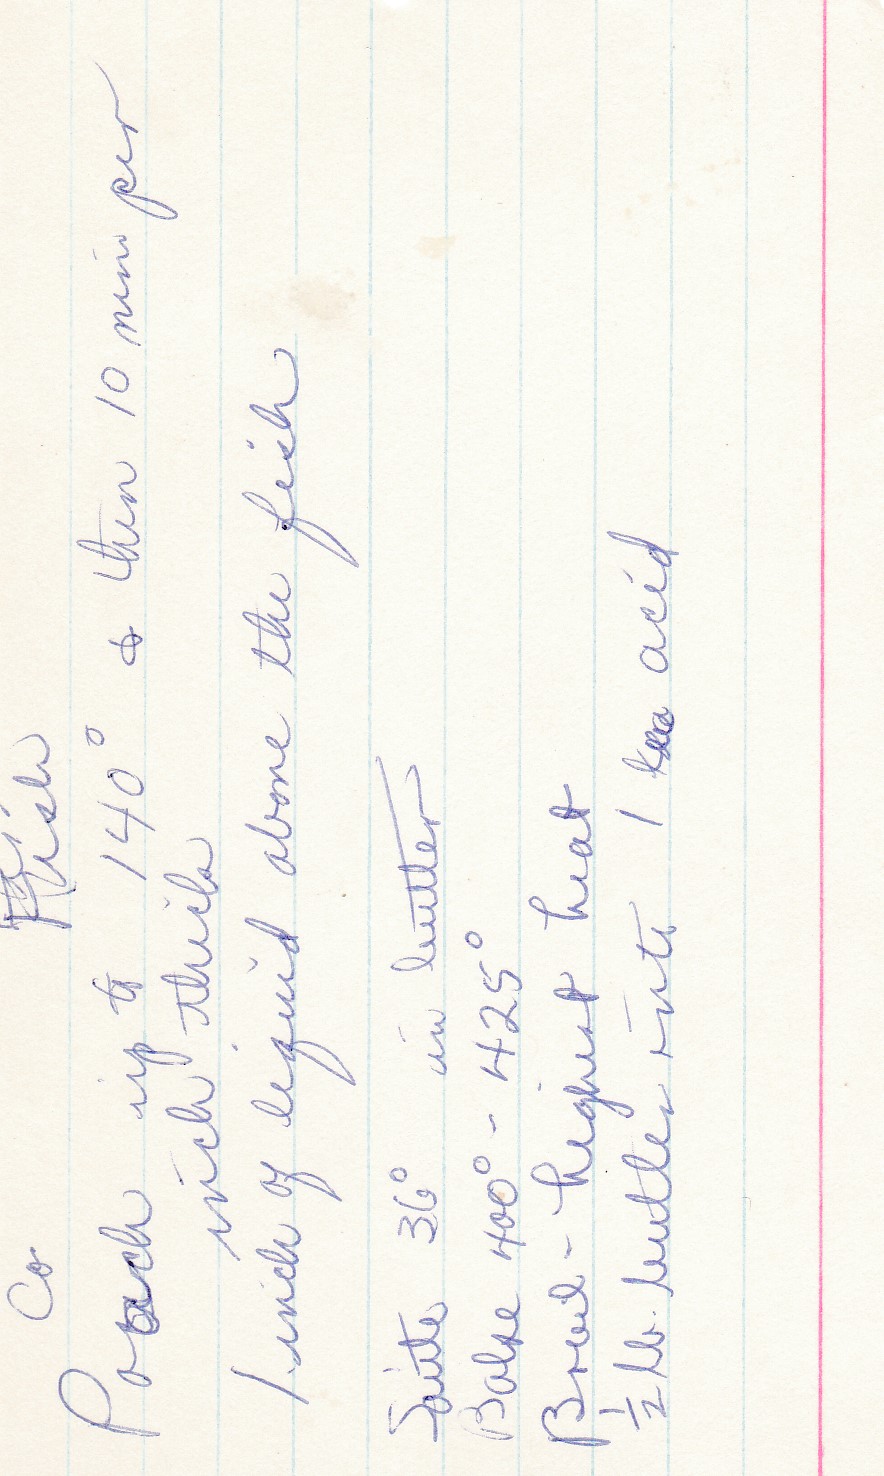 Co Fish
Poach up to 140° & then 10 min per
inch thick
1 inch of liquid above the fish
Saute 36° in butter
Bake 400° - 425°
Broil - highest heat
½ lb. butter into 1 acid